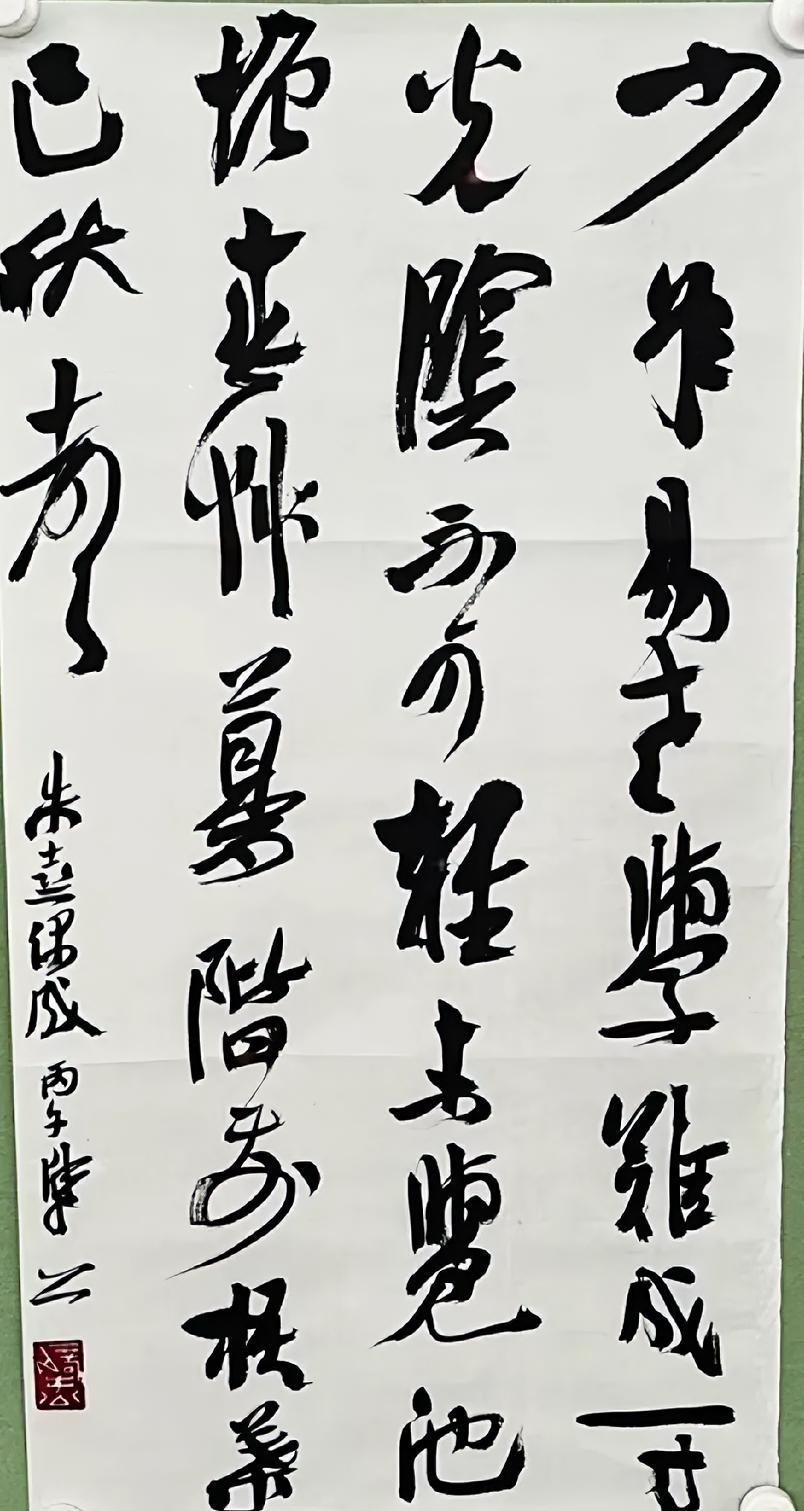 少年易老學難成一寸
光陰不可輕未覺池
塘春草夢階前梧葉
已秋聲
朱熹偶成 丙午